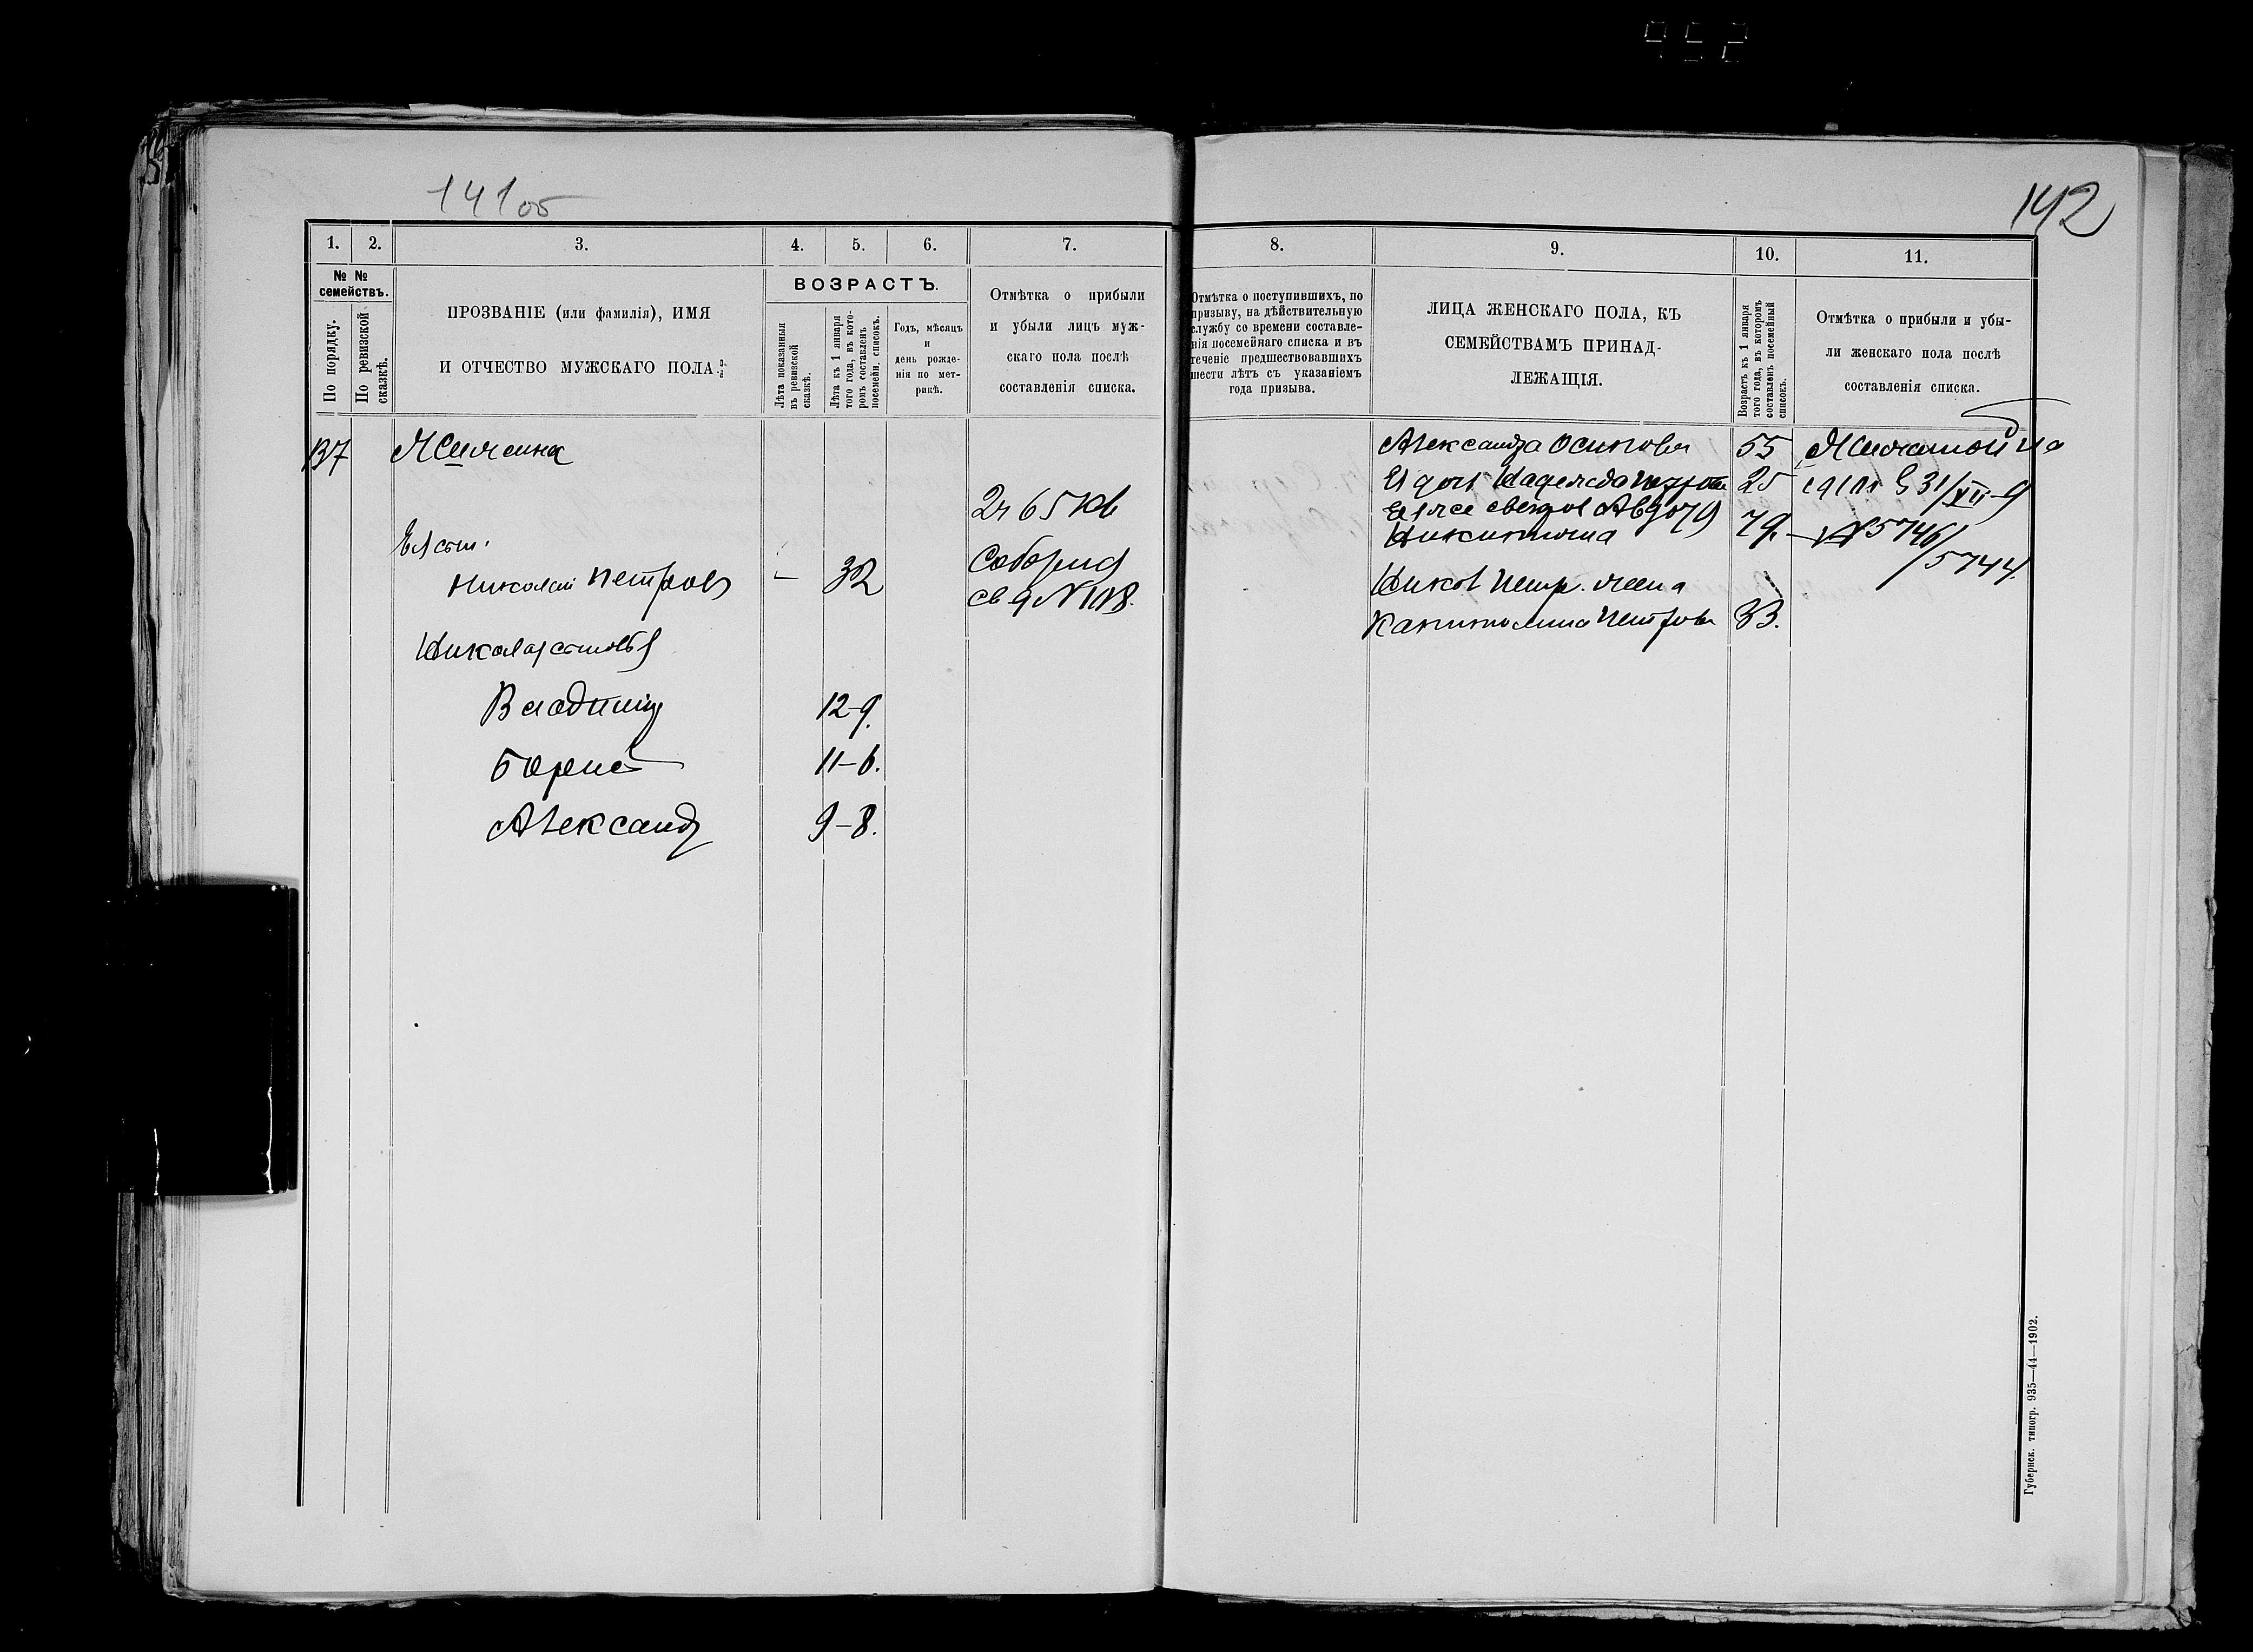 952
141об
142
1.
2.
3.
4.
5.
6.
7.
8.
9.
10.
11.
№ №
семействъ.
По порядку.
По ревизской
сказкѣ.
ПРОЗВАНІЕ (или фамилія), ИМЯ
И ОТЧЕСТВО МУЖСКАГО ПОЛА.
ВОЗРАСТЪ.
Лѣта показанныя
въ ревизской
сказкѣ.
Лѣта къ 1 января
того года, въ кото-
ромъ составленъ
посемейн. списокъ.
Годъ, мѣсяцъ
и
день рожде-
нія по мет-
рикѣ.
Отмѣтка о прибыли
и убыли лицъ муж-
скаго пола послѣ
составленія списка.
Отмѣтка о поступившихъ, по
призыву, на дѣйствительную
службу со времени составле-
нія посемейнаго списка и въ
теченіе предшествовавшихъ
шести лѣтъ съ указаніемъ
года призыва.
ЛИЦА ЖЕНСКАГО ПОЛА, КЪ
СЕМЕЙСТВАМЪ ПРИНАД-
ЛЕЖАЩІЯ.
Возрастъ къ 1 января
того года, въ которомъ
составленъ посемейный
списокъ.
Отмѣтка о прибыли и убы-
ли женскаго пола послѣ
составленія списка.
137
2ч 65 кв
Ея сын.
Николай Петровъ
32
Николая сыновья
Владимір
12-9.
Борисъ
11-6.
Александр
9-8.
Александра Осипова 55
Ея дочь Надежда Петрова 25
Ея же свекровь Авдотья
Никитина 79.
Никол Петр. жена
Капитолина Петрова 33.
31/XII-9
№ 5746/
/5744.
Губернск. типогр. 935—44—1902.